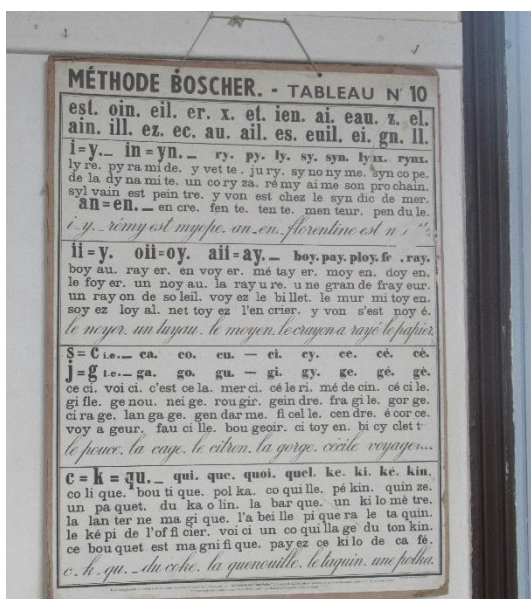 MÉTHODE BOSCHER. - TABLEAU N° 10
est. oin. eil. er. x. et. ien. ai. eau. z. el.
ain. ill. ez. ec. au. ail. es. euil. ei. gn. ll.
i = y. _ in = yn. _ ry. py. ly. sy. syn. lynx. rynx.
ly re. py ra mi de. y vet te. ju ry. sy no ny me. syn co pe.
de la dy na mi te. un co ry za. ré my ai me son pro chain.
syl vain est pein tre. y von est chez le syn dic de mer.
an = en. _ en cre. fen te. ten te. men teur. pen du le.
i _ y _ rémy est myope _ an _ en _ florentine est
ii = y. oii = oy. aii = ay. _ boy. pay. ploy. ray.
boy au. ray er. en voy er. mé tay er. moy en. doy en.
le foy er. un noy au. la ray u re. u ne gran de fray eur.
un ray on de so leil. voy ez le bi llet. le mur mi toy en.
soy ez loy al. net toy ez l'en crier. y von s'est noy é.
le noyer. un tuyau. le moyen. le crayon a rayé le papier.
s = c i.e. _ ca. co. cu. — ci. cy. ce. cé. cè.
j = g i.e. _ ga. go. gu. — gi. gy. ge. gé. gè.
ce ci. voi ci. c'est ce la. mer ci. cé le ri. mé de cin. cé ci le.
gi fle. ge nou. nei ge. rou gir. gein dre. fra gi le. gor ge.
ci ra ge. lan ga ge. gen dar me. fi cel le. cen dre. é cor ce.
voy a geur. fau ci lle. bou geoir. ci toy en. bi cy clet t
le pouce. la cage. le citron. la gorge. cécile voyage
c = k = qu. _ qui. que. quoi. quel. ke. ki. ké. kin.
co li que. bou ti que. pol ka. co qui lle. pé kin. quin ze.
un pa quet. du ka o lin. la bar que. un ki lo mè tre.
la lan ter ne ma gi que. l'a bei lle pi que ra le ta quin.
le ké pi de l'of fi cier. voi ci un co qui lla ge du ton kin.
ce bou quet est ma gni fi que. pay ez ce ki lo de ca fé.
c _ k _ qu. _ du coke. la quenouille. le taquin. une polka.